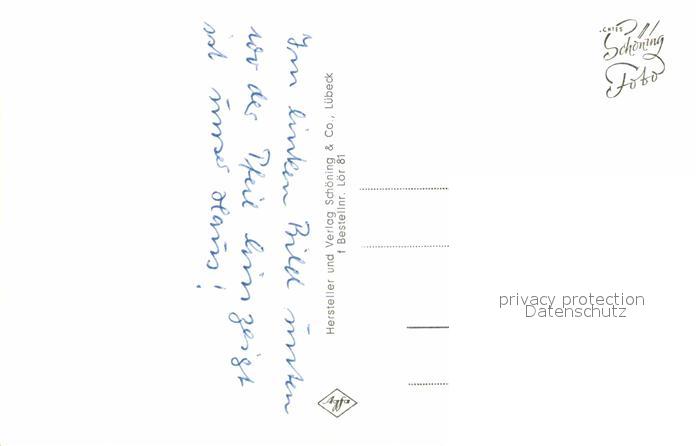 Im linken Bild unten
wo der Pfeil hinzeigt
ist unser Haus!
Hersteller und Verlag Schöning & Co., Lübeck
f Bestellnr. Lör 81
Agfa
ECHTES
Schöning
Foto
privacy protection
Datenschutz